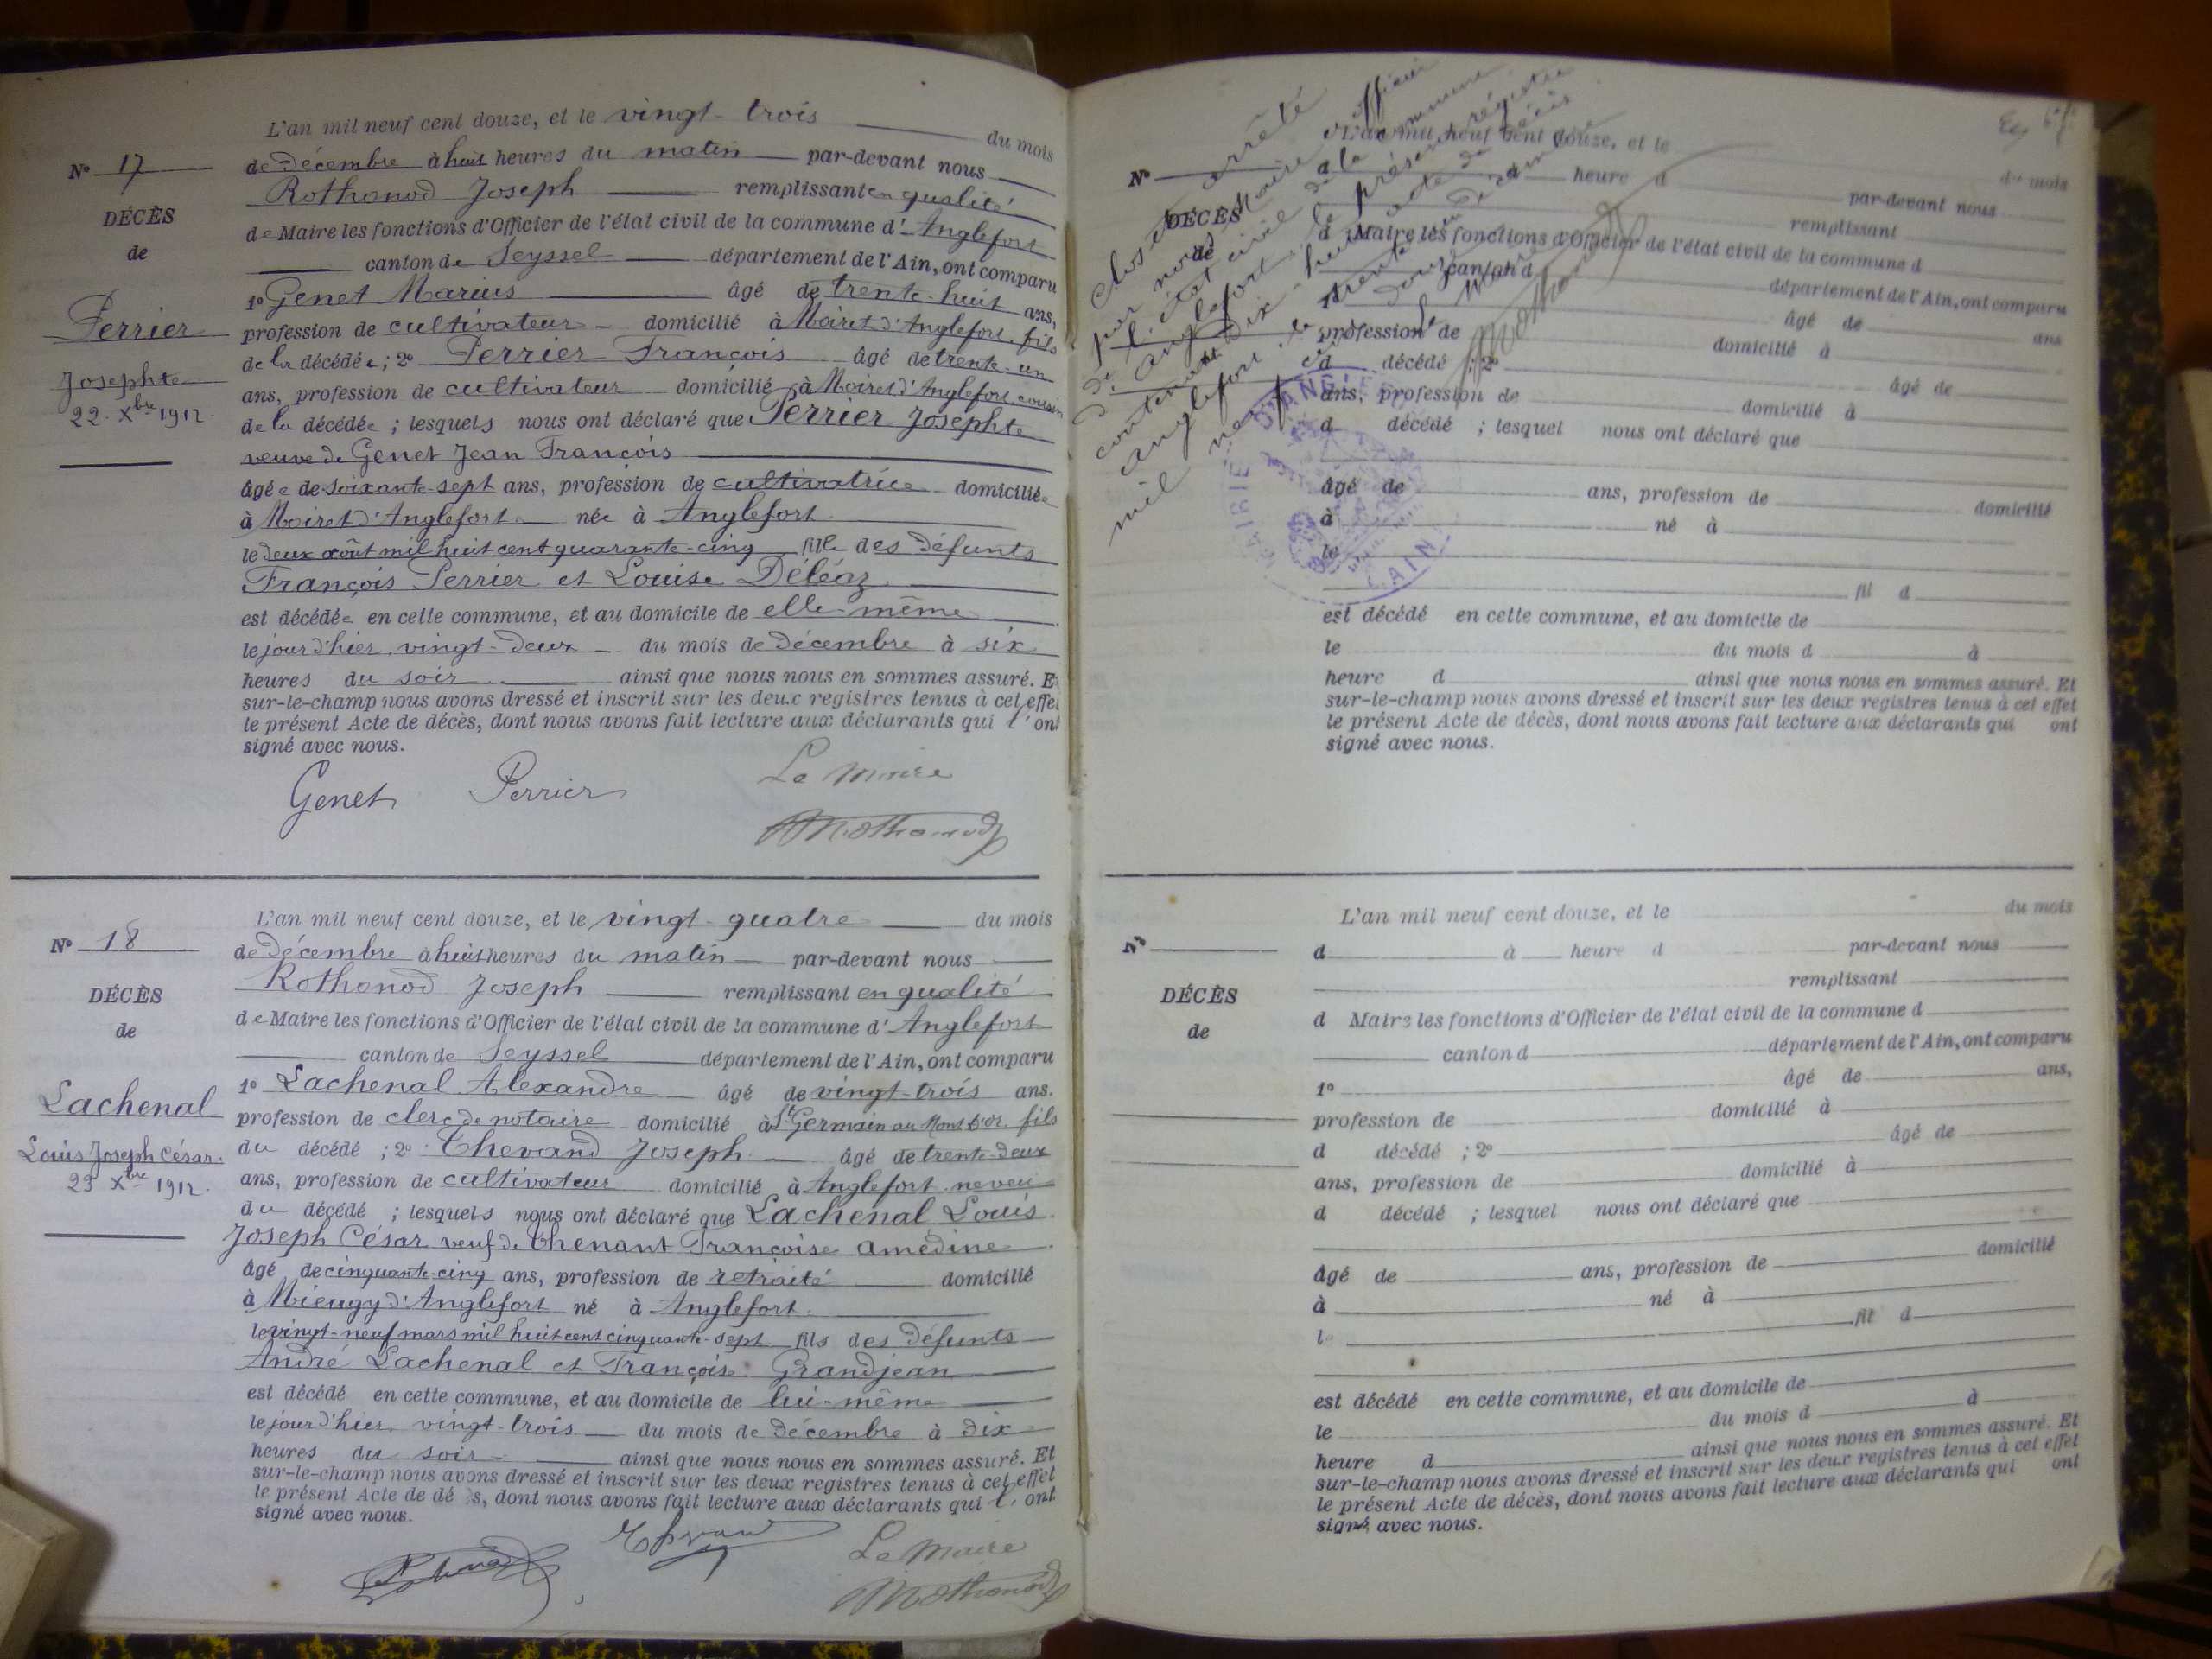 L'an mil neuf cent douze, et le vingt-trois du mois
N° 17
de Décembre à huit heures du matin par-devant nous
Rothonod Joseph remplissant en qualité
DÉCÈS
de Maire les fonctions d'Officier de l'état civil de la commune d'Anglefort
de
canton de Seyssel département de l'Ain, ont comparu
1° Genet Marius âgé de trente-huit ans,
Perrier
profession de cultivateur domicilié à Moiret d'Anglefort, fils
de la décédée ; 2° Perrier François âgé de trente-un
Josephte
ans, profession de cultivateur domicilié à Moiret d'Anglefort cousin
22 Xbre 1912.
de la décédée ; lesquels nous ont déclaré que Perrier Josephte
veuve de Genet Jean François
âgée de soixante-sept ans, profession de cultivatrice domiciliée
à Moiret d'Anglefort née à Anglefort
le deux août mil huit cent quarante-cinq fille des défunts
François Perrier et Louise Déléaz.
est décédée en cette commune, et au domicile de elle-même
le jour d'hier vingt-deux du mois de Décembre à six
heures du soir ainsi que nous nous en sommes assuré. Et
sur-le-champ nous avons dressé et inscrit sur les deux registres tenus à cet effet
le présent Acte de décès, dont nous avons fait lecture aux déclarants qui l'ont
signé avec nous.
Genet Perrier Le Maire
Rothonod
L'an mil neuf cent douze, et le vingt-quatre du mois
N° 18
de Décembre à huit heures du matin par-devant nous
Rothonod Joseph remplissant en qualité
DÉCÈS
de Maire les fonctions d'Officier de l'état civil de la commune d'Anglefort
de
canton de Seyssel département de l'Ain, ont comparu
1° Lachenal Alexandre âgé de vingt-trois ans.
Lachenal
profession de clerc de notaire domicilié à St Germain au Mont d'Or, fils
du décédé ; 2° Thevand Joseph âgé de trente-deux
Louis Joseph César.
ans, profession de cultivateur domicilié à Anglefort neveu
23 Xbre 1912.
du décédé ; lesquels nous ont déclaré que Lachenal Louis
Joseph César veuf de Thenant Françoise Amédine
âgé de cinquante-cinq ans, profession de retraité domicilié
à Mieugy d'Anglefort né à Anglefort.
le vingt-neuf mars mil huit cent cinquante-sept fils des défunts
André Lachenal et Françoise Grandjean
est décédé en cette commune, et au domicile de lui-même
le jour d'hier vingt-trois du mois de Décembre à dix
heures du soir ainsi que nous nous en sommes assuré. Et
sur-le-champ nous avons dressé et inscrit sur les deux registres tenus à cet effet
le présent Acte de décès, dont nous avons fait lecture aux déclarants qui l'ont
signé avec nous.
Le Maire
Rothonod
Clos et arrêté
par nous Maire officier
de l'état civil de la commune
d'Anglefort le présent régistre
contenant dix-huit actes de décès
Anglefort, le trente un Décembre
mil neuf cent douze
Le Maire
Rothonod
MAIRIE D'ANGLEFORT
(AIN)
L'an mil neuf cent douze, et le du mois
N° d à heure d par-devant nous
remplissant
DÉCÈS
d Maire les fonctions d'Officier de l'état civil de la commune d
de
canton d département de l'Ain, ont comparu
1° âgé de ans
profession de domicilié à
d décédé ; 2° âgé de
ans, profession de domicilié à
d décédé ; lesquel nous ont déclaré que
âgé de ans, profession de domicilié
à né à
le
fil d
est décédé en cette commune, et au domicile de
le du mois d à
heure d ainsi que nous nous en sommes assuré. Et
sur-le-champ nous avons dressé et inscrit sur les deux registres tenus à cet effet
le présent Acte de décès, dont nous avons fait lecture aux déclarants qui ont
signé avec nous.
L'an mil neuf cent douze, et le du mois
N° d à heure d par-devant nous
remplissant
DÉCÈS
d Maire les fonctions d'Officier de l'état civil de la commune d
de
canton d département de l'Ain, ont comparu
1° âgé de ans,
profession de domicilié à
d décédé ; 2° âgé de
ans, profession de domicilié à
d décédé ; lesquel nous ont déclaré que
âgé de ans, profession de domicilié
à né à
le fil d
est décédé en cette commune, et au domicile de
le du mois d à
heure d ainsi que nous nous en sommes assuré. Et
sur-le-champ nous avons dressé et inscrit sur les deux registres tenus à cet effet
le présent Acte de décès, dont nous avons fait lecture aux déclarants qui ont
signé avec nous.